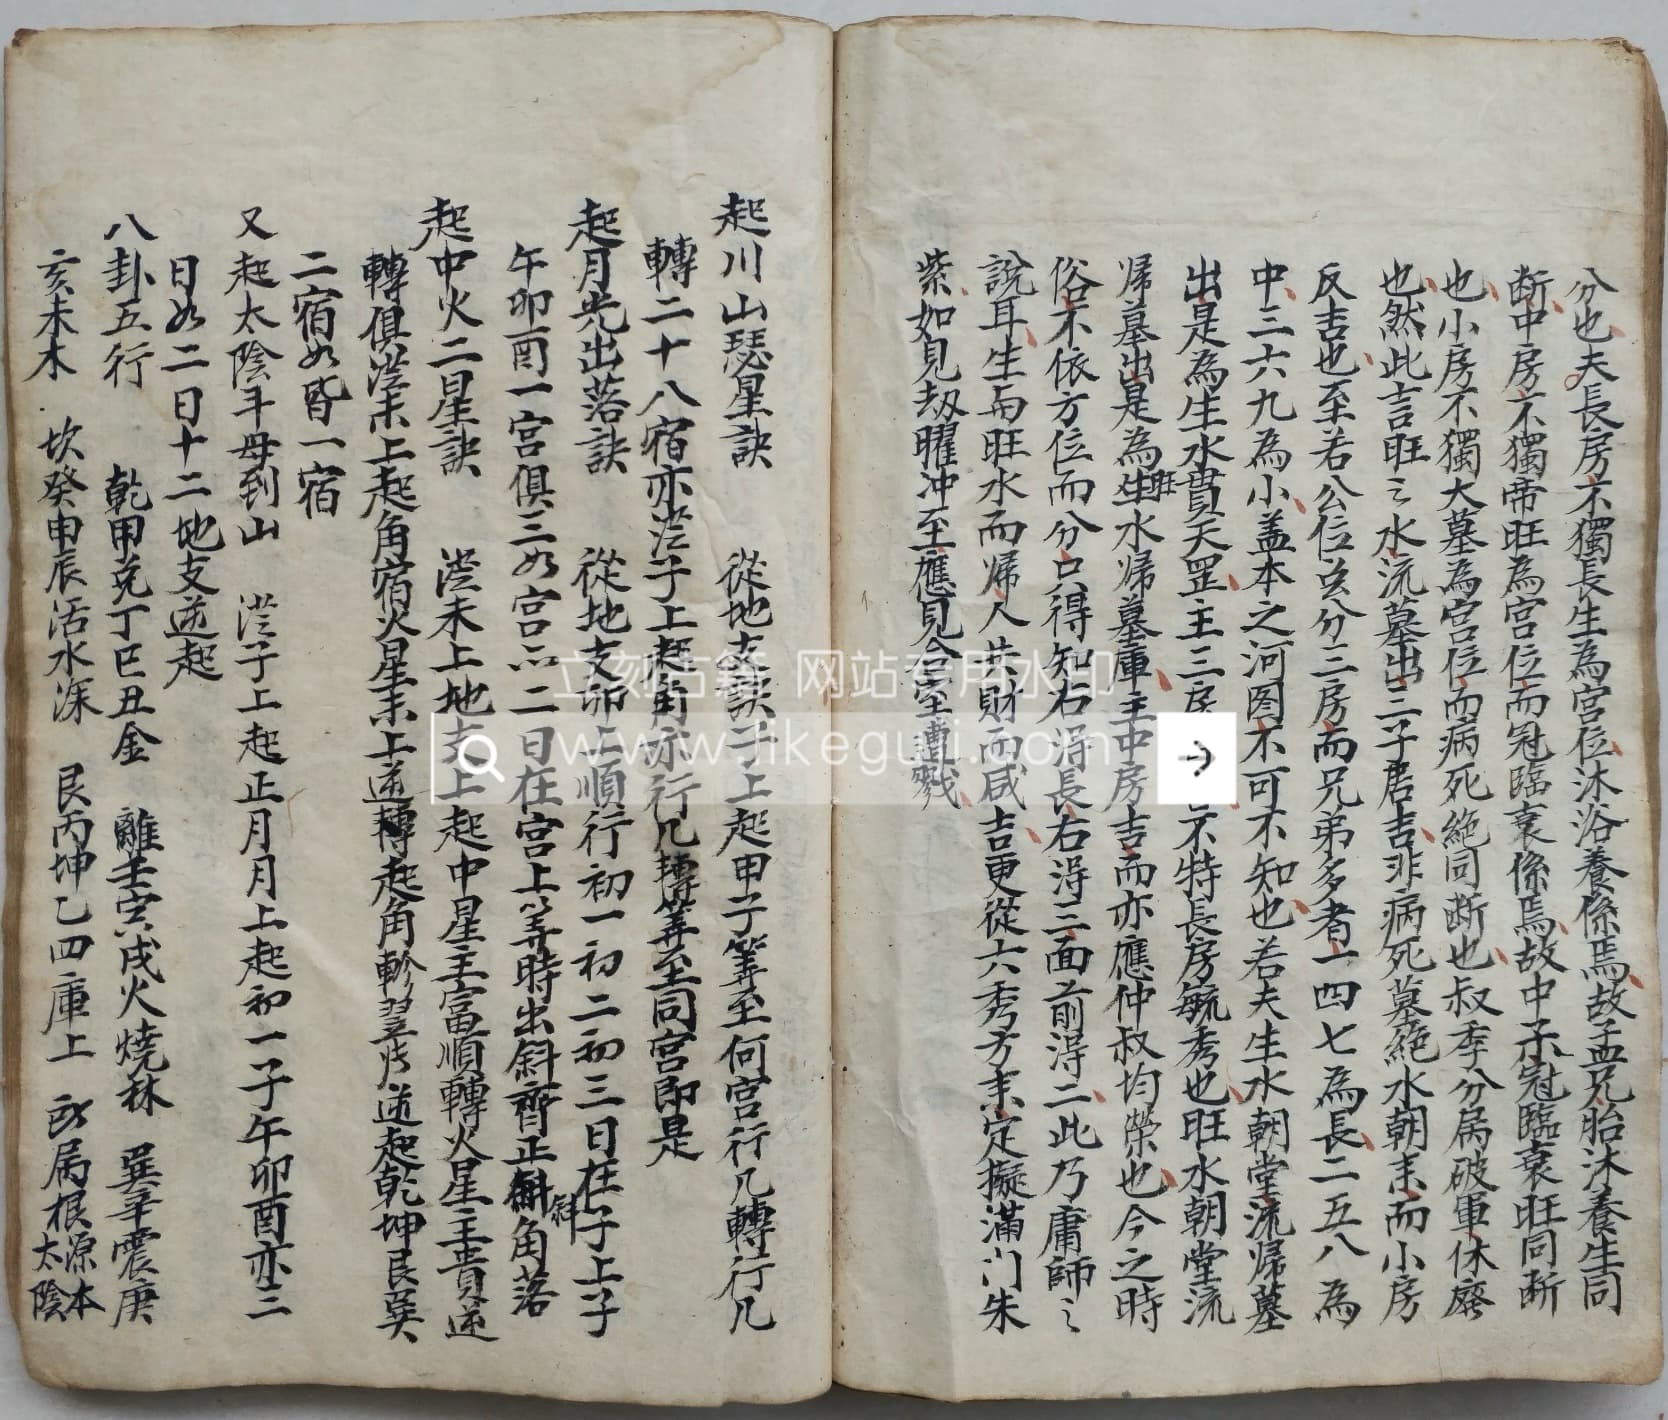 分也夫長房不獨長生為宮位沐浴養係焉故孟兄胎沐養生同
断中房不獨帝旺為宮位而冠臨衰係焉故中子冠臨衰旺同断
也小房不獨大墓為宮位而病死絶同断也叔季分属破軍休廢
也然此吉旺之水流墓出三子居吉非病死墓絶水朝来而小房
反吉也至若公位公分三房而兄弟多者一四七為長二五八為
中三六九為小盖本之河图不可不知也若夫生水朝堂流帰墓
出是為生水貫天罡主三房 不特長房毓秀也旺水朝堂流
帰墓出是為生旺水帰墓庫主中房吉而亦應仲叔均榮也今之時
俗不依方位而分只得知右得長右得三面前得二此乃庸師之
說耳生而旺水而帰人共財而咸吉更從六秀方来定擬滿门朱
紫如見劫曜冲至應見合室遭戮
起川山瑟星訣 從地支訣子上起甲子筭至何宮行几轉行几
轉二十八宿亦從子上起角亦行几轉筭至同宮即是
起月光出落訣 從地支卯上順行初一初二初三日在子上子
午卯酉一宮俱三如宮二日在宮上筭時出斜齊正斛斜角落
起中火二星訣 從未上地支上起中星主富順轉火星主貴逆
轉俱從未上起角宿火星未上逆轉起角軫翌逆起乾坤艮巽
二宿如昏一宿
又起太陰斗母到山 從子上起正月月上起初一子午卯酉亦三
日如二日十二地支逆起
八卦五行 乾甲兊丁巳丑金 離壬寅戌火燒林 巽辛震庚
亥未木 坎癸申辰活水深 艮丙坤乙四庫上 属根源本
太陰
立刻古籍 网站专用水印
www.likeguji.com